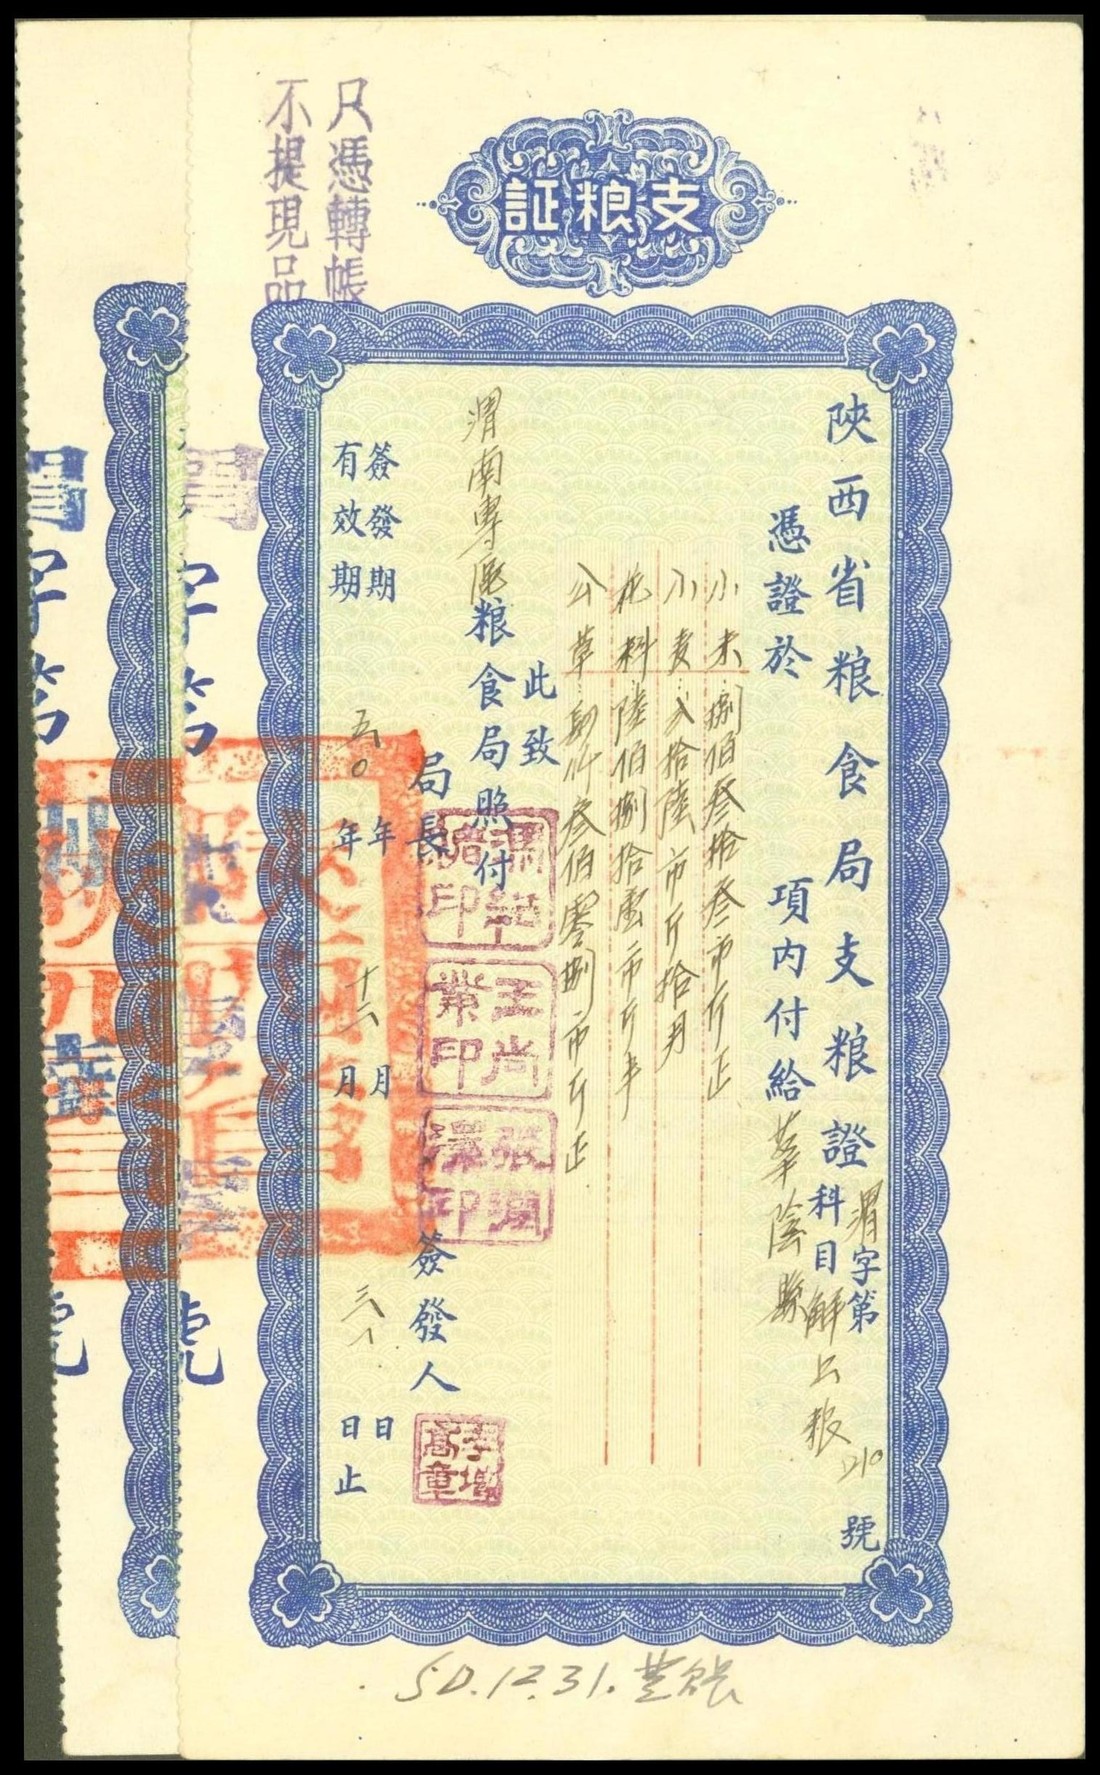 支粮証
只憑轉帳
不提現品
陝西省粮食局支粮證渭字第210號
憑證於 項內付給華陰縣
科目解公粮
小米捌佰叁拾叁市斤正
小麦弍拾陸市斤拾月
花料陸佰捌拾壹市斤半
公草肆仟叁佰零捌市斤正
此致
渭南專區粮食局照付
局長 簽發人
王尚業印
李增高章
簽發期 年 月 日
有效期 五〇年十二月三一日止
字第
號
字第
號
50.12.31.